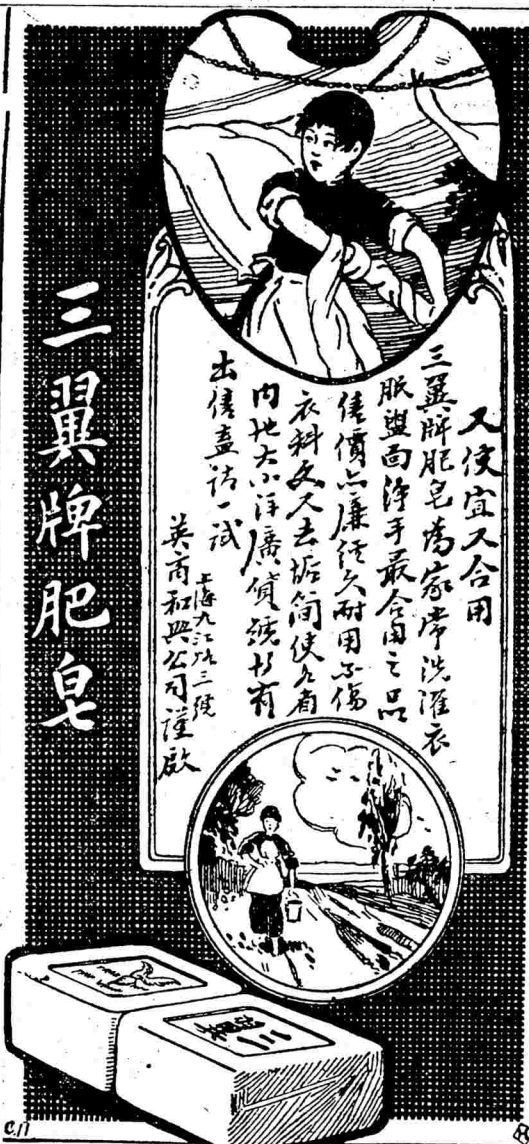 又便宜又合用
三翼牌肥皂為家常洗濯衣
服盥面淨手最合用之品
售價亦廉經久耐用不傷
衣料又去垢簡便各省
內地大小洋廣貨號均有
出售盍請一試
上海九江路三號
英商和興公司謹啟
三翼牌肥皂
C17